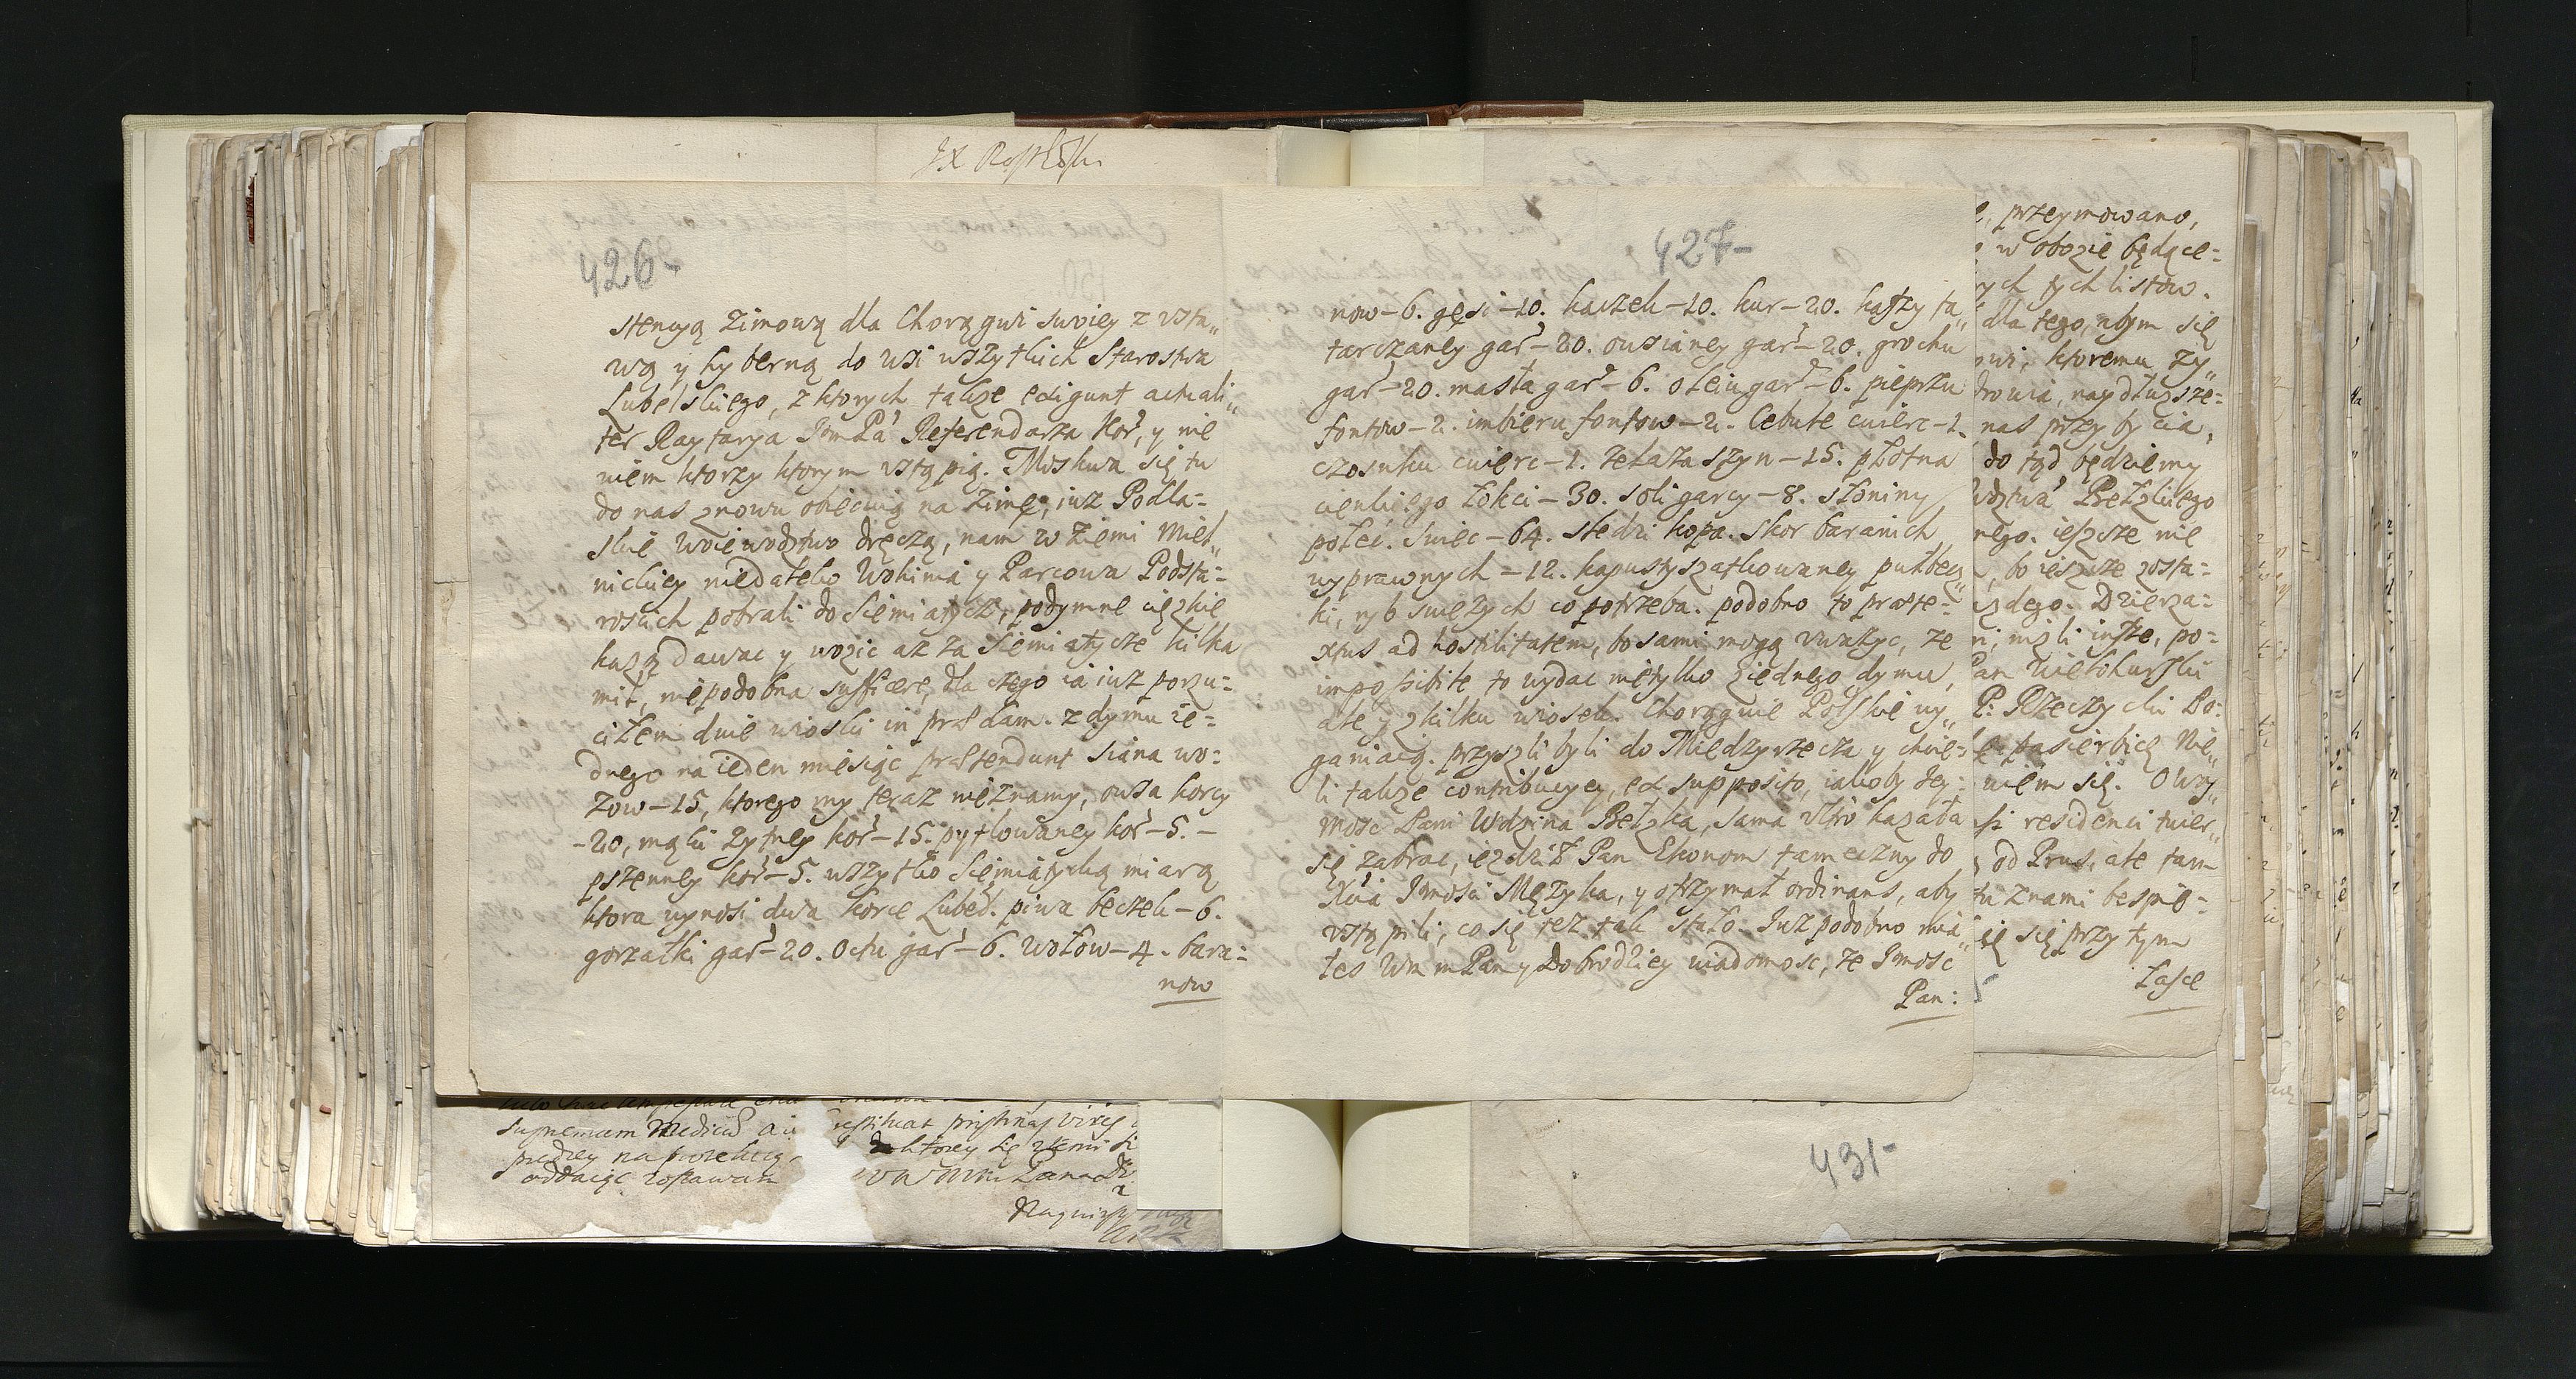 426-
stencyą zimową dla Chorągwi swoiey z vsta„
wą y hyberną do wsi wszytkich Starostwa
Lubelskiego, z ktorych także exigunt actuali„
ter Raytarya JmPa Referendarza Kor, y nie
wiem ktorzy ktorym vstąpią. Moskwa się tu
do nas znowu obiecuią na zimę, iuz Podla=
skie Woiewodztwo dręczą, nam w Ziemi Miel„
nickiey niedaleko Wohinia y Parcowa Podsta=
rosich pobrali do Siemiatycz, podymne cięzkie
kazą dawac y wozic az za Siemiatycze kilka
mil, niepodobna sufficere, dla czego ia iuz porzu=
ciłem dwie wioski in prædam. z dymu ie=
dnego na ieden miesiąc prætendunt siana wo=
zow-15, ktorego my teraz nieznamy, owsa korcy
-20, mąki zytney kor-15. pytlowaney kor-5.-
pszenney kor-5. wszytko Siemiatycką miarą
ktora wynosi dwa korce Lubel. piwa beczek-6.
gorzałki gar-20. Octu gar-6. wołow-4. bara=
now
427-
now-6. gęsi-10. kaczek-10. kur-20. kaszy ta„
tarczaney gar-20. owsianey gar-20. grochu
gar-20. masła gar-6. oleiu gar-6. pieprzu
fontow-2. imbieru fontow-2. Cebule cwierc-1.
czosnku cwierc-1. żelaza szyn-15. płotna
cienkiego łokci-30. soli garcy-8. słoniny
połeć. Swiec-64. sledzi kopa. skor baranich
wyprawnych-12. kapusty szatkowaney pułbecz„
ki, ryb swiezych co potrzeba. podobno to præte=
xtus ad hostilitatem, bo sami mogą vwazyc, ze
impossibile to wydac nietylko z iednego dymu,
ale y z kilku wiosek. Chorągwie Polskie wy„
ganiaią. przyszli byli do Miedzyrzecza y chcie=
li także contribucyey, ex supposito, iakoby Jey=
mosc Pani Wdzina Bełzka, sama vltro kazała
się zabrac, iezdził Pan Ekonom tameczny do
Xcia Jmosci Męzyka, y otrzymał ordinans, aby
vstąpili, co się tez tak stało. Juz podobno mia„
łes Wm mPan y Dobrodziey wiadomosc, ze Jmosc
Pan:
przeymowano,
w obozie będące=
ych tych listow.
dla tego, abym się
owi, ktoremu zy„
drowia, naydłuzsze=
nas przybycia,
do tąd będziemy
Wdztwa Bełzkiego
nego. ieszcze nie
, bo ieszcze zosta=
Dzierza=
nizli insze, po=
Pan Wielohurski
P: Rzeczycki Bo:
pasierbicę Nie„
wiem się. O
residenci twier„
od Prus, ale tam
tu z nami bespie=
się przy tym
łasce
431-
supremum Medicum
prędzey na
oddaiąc zostawam
restituat pristinas vires
ktorey się